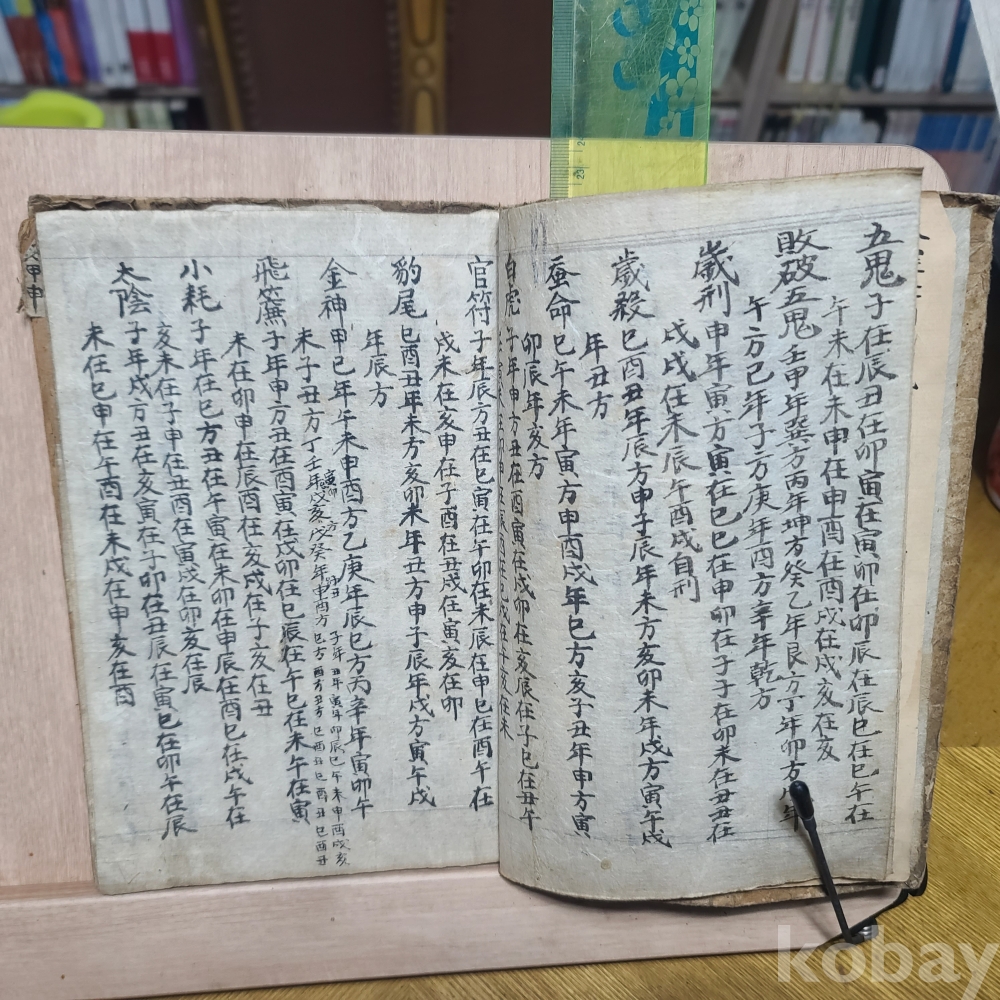 五鬼子在辰丑在卯寅在寅卯在卯辰在辰巳在巳午在
午未在未申在申酉在酉戌在戌亥在亥
敗破五鬼壬甲年巽方丙年坤方癸乙年艮方丁年卯方
午方己年子方庚年酉方辛年乾方
歲刑申年寅方寅在巳巳在申卯在子子在卯未在丑丑在
戌戌在未辰午酉戌自刑
歲殺巳酉丑年辰方申子辰年未方亥卯未年戌方寅午戌
年丑方
蚕命巳午未年寅方申酉戌年巳方亥子丑年申方寅
卯辰年亥方
白虎子年申方丑在酉寅在戌卯在亥辰在子巳在丑午
官符子年辰方丑在巳寅在午卯在未辰在申巳在酉午在
戌未在亥申在子酉在丑戌在寅亥在卯
豹尾巳酉丑年未方亥卯未年丑方申子辰年戌方寅午戌
年辰方
金神甲己年午未申酉方乙庚年辰巳方丙辛年寅卯午
未子丑方丁壬年寅卯戌亥方戊癸年申酉方
飛簾子年申方丑在酉寅在戌卯在巳辰在午巳在未午在寅
未在卯申在辰酉在亥戌在子亥在丑
小耗子年在巳方丑在午寅在未卯在申辰在酉巳在戌午在
亥未在子申在丑酉在寅戌在卯亥在辰
太陰子年戌方丑在亥寅在子卯在丑辰在寅巳在卯午在辰
未在巳申在午酉在未戌在申亥在酉
kobay